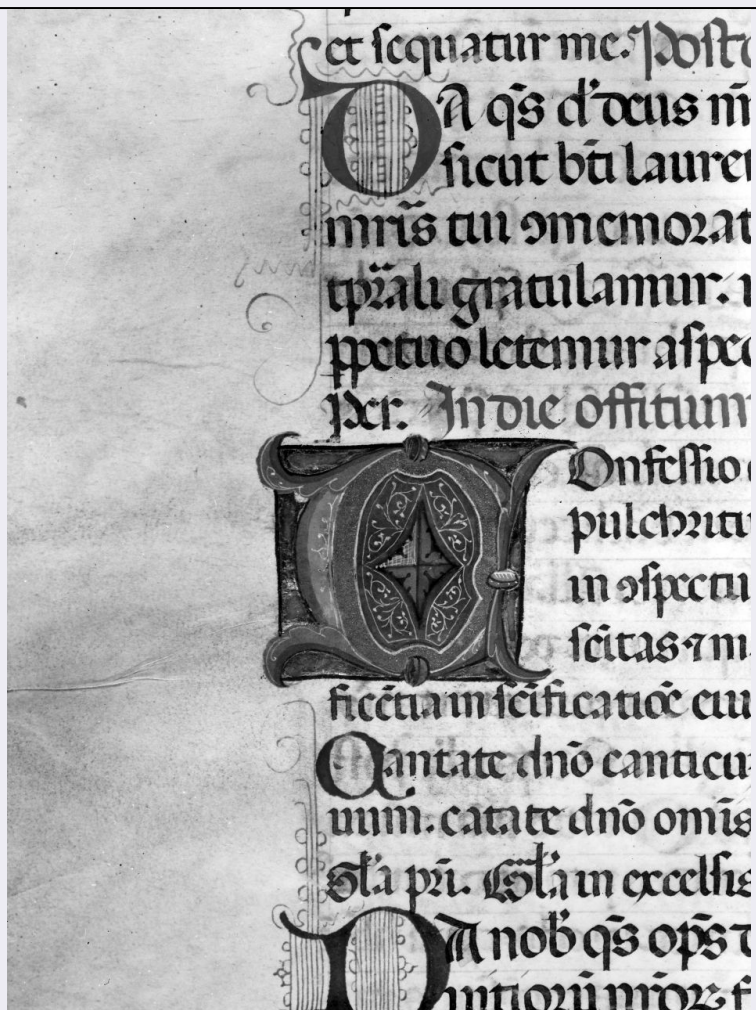 et sequatur me. Postc
DA q̄s o͞ps deus n̄r
sicut bt̄i lauren
mr̄is tui ꝯmemorat
tp̄rali gratulamur.
ppetuo letemur aspec
Per. In die offitium
COnfessio
pulchritu
in ꝯspectu
sc̄itas ⁊ m
ficētia in sc̄ificatiōe eiu
Cantate dn̄o canticu
uum. cātate dn̄o omīs
Gl̄a pr̄i. Gl̄a in excelsis
DA nob̄ q̄s op̄s